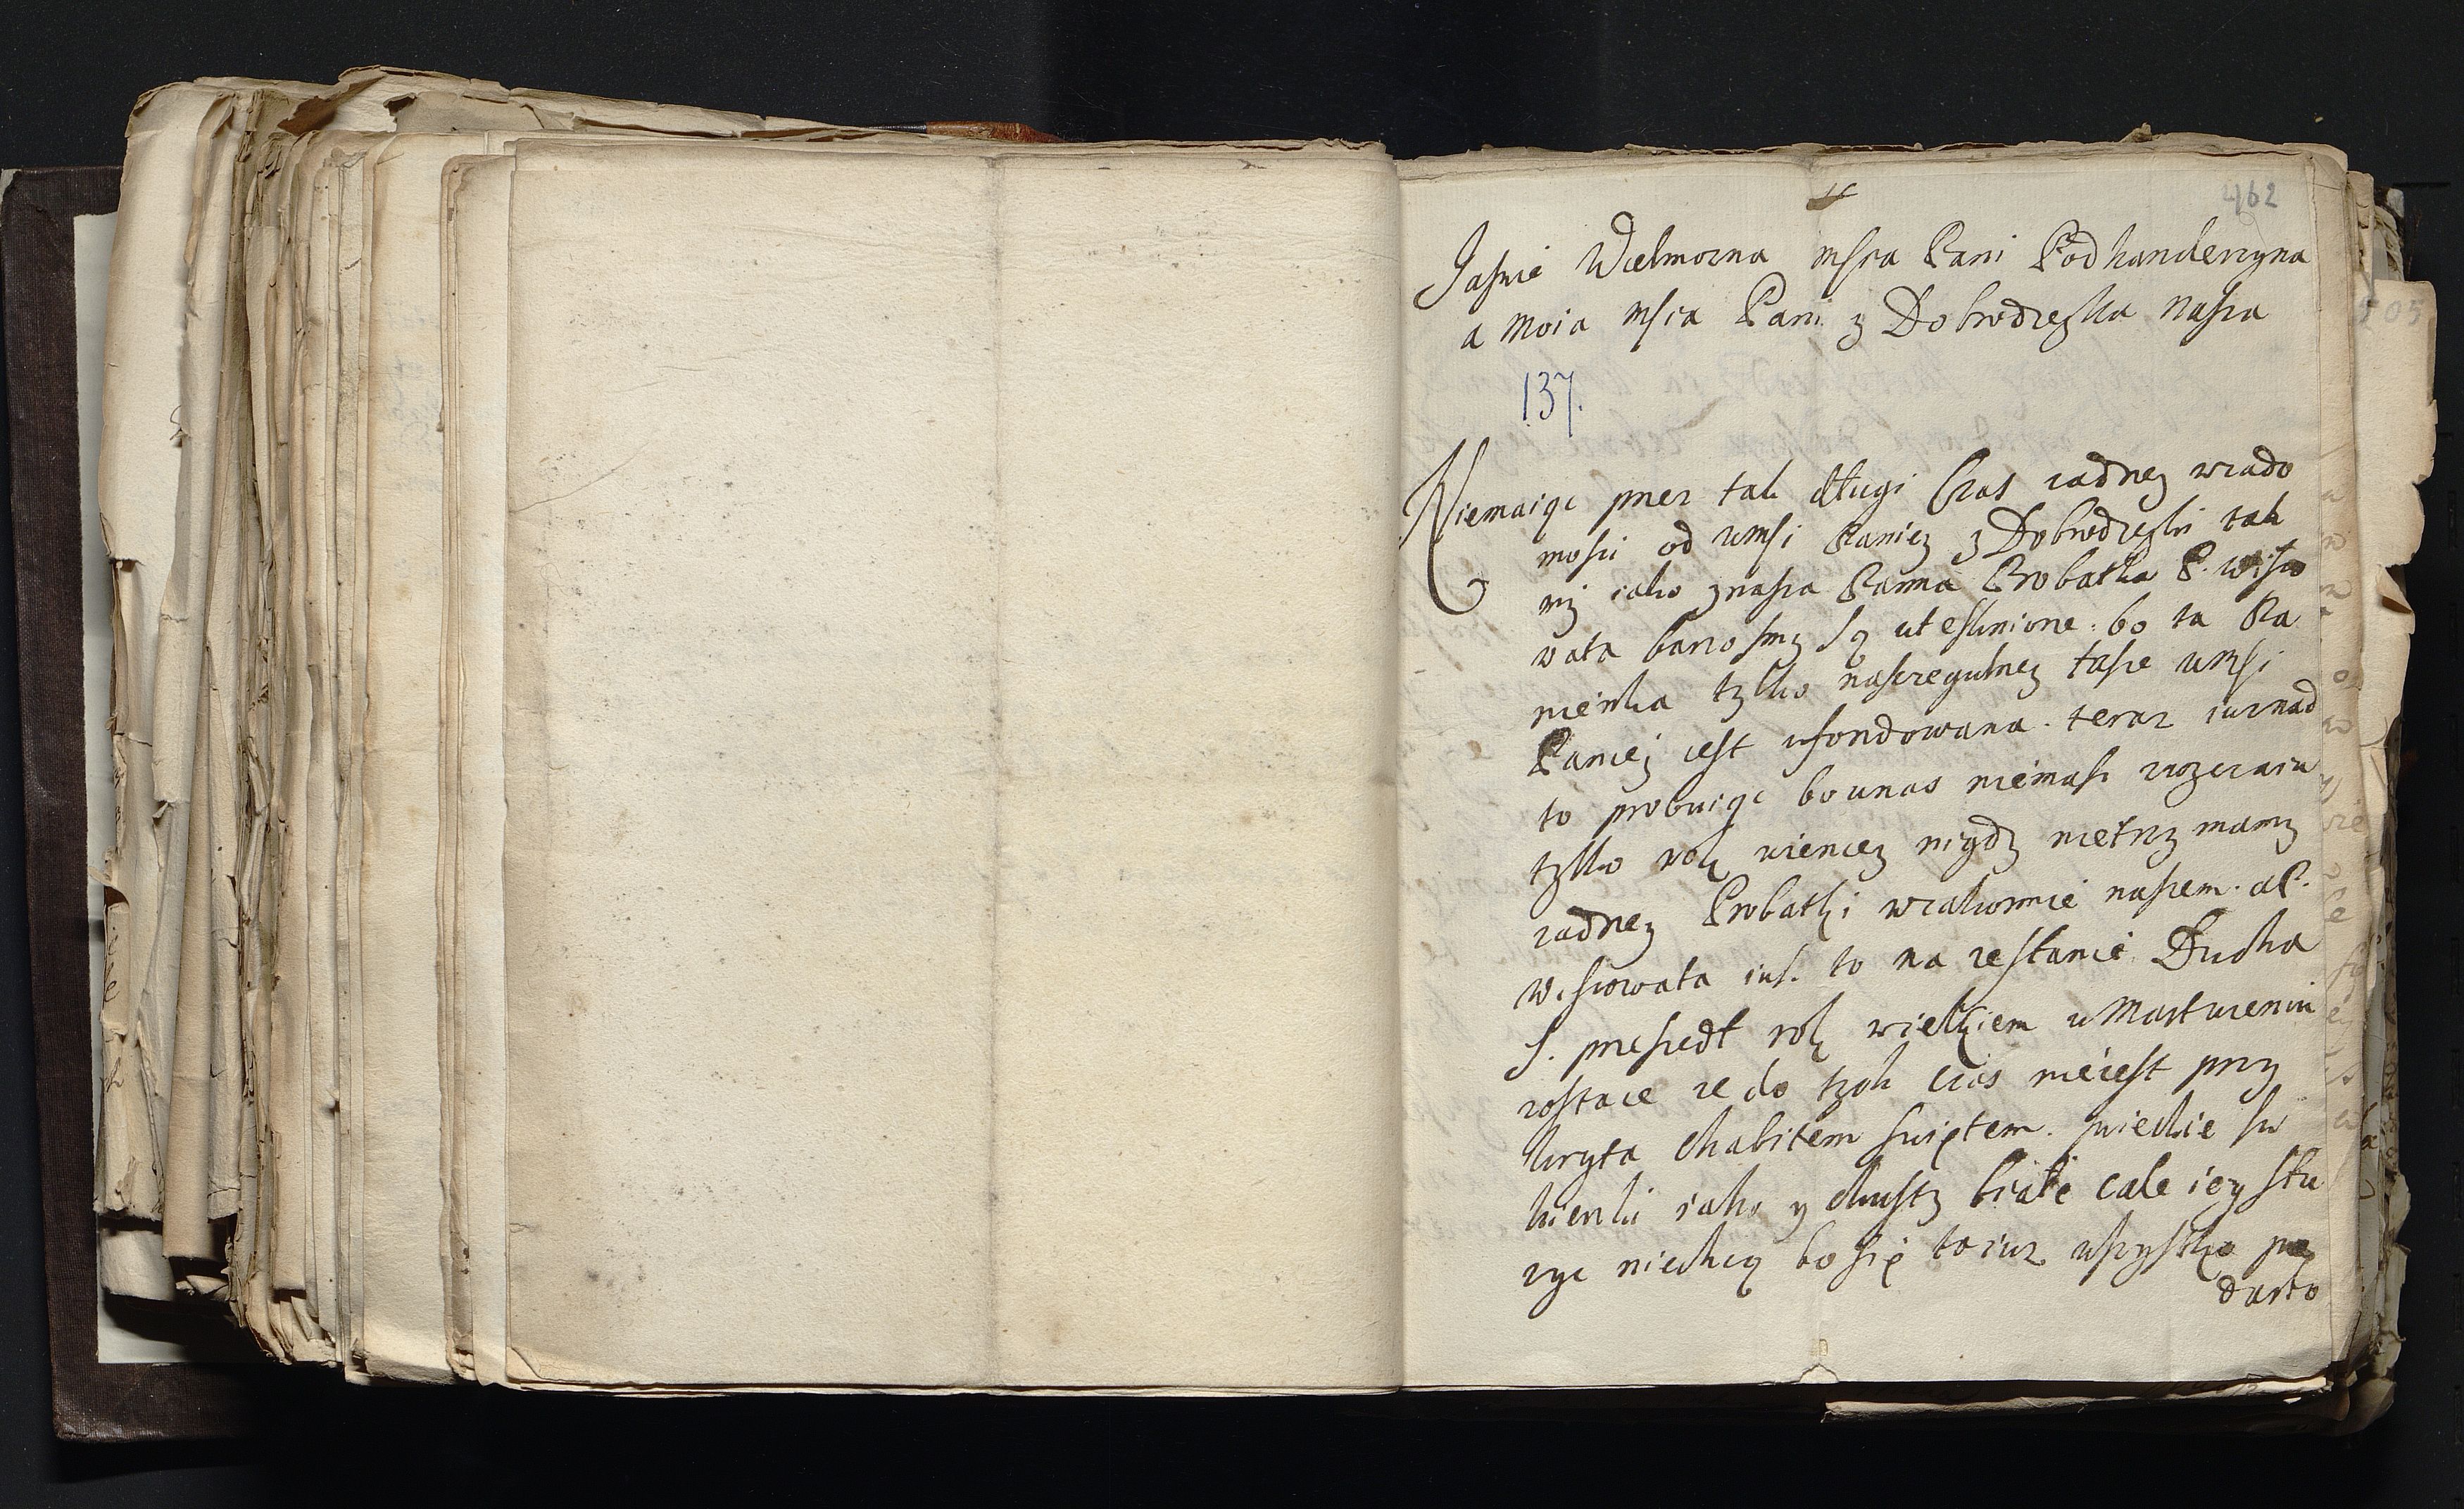 462
Jasnie Wielmozna mscia Pani Podkanclerzyna
a moia mscia Pani y Dobrodzeyka nasza
137.
Niemaiąc przez tak długi Czas zadney wiado
mosci od wmsci Paniey y Dobrodzeyki tak
my iako y nasza Panna Probatka P. wiszo
wata barzosmy są utesknione. bo ta Pa
nienka tylko naszczegulney łasce wmsci
Paniey iest ufondowana. teraz iuznad
to probuiąc bo unas niemasz zwyczaiu
tylko rok wiencey nigdy nietrzymamy
zadney Probatki wzakonnie naszem. aP.
wiszowata iusz to na zesłanie Ducha
S. przeszedł rok wielkiem umartwieniu
zostaie ze do tych czas nieiest przy
kryta Chabitem swiętem. swieckie su
kienki iako y chusty białe cale iey słu
zyc niechcą bo się to iuz wszystko po
darło
505